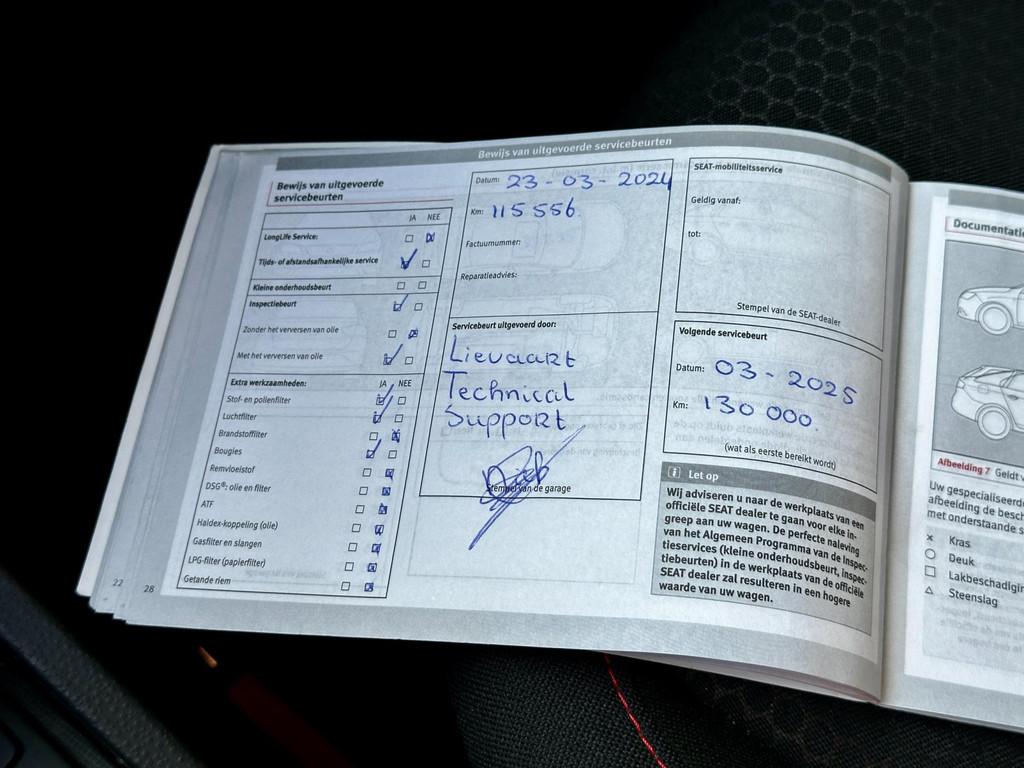 Bewijs van uitgevoerde servicebeurten
Bewijs van uitgevoerde
servicebeurten
JA NEE
LongLife Service:
Tijds- of afstandsafhankelijke service
Kleine onderhoudsbeurt
Inspectiebeurt
Zonder het verversen van olie
Met het verversen van olie
Extra werkzaamheden: JA NEE
Stof- en pollenfilter
Luchtfilter
Brandstoffilter
Bougies
Remvloeistof
DSG®: olie en filter
ATF
Haldex-koppeling (olie)
Gasfilter en slangen
LPG-filter (papierfilter)
Getande riem
22 28
Datum: 23-03-2024
Km: 115 556
Factuurnummer:
Reparatieadvies:
Servicebeurt uitgevoerd door:
Lievaart
Technical
Support
Stempel van de garage
SEAT-mobiliteitsservice
Geldig vanaf:
tot:
Stempel van de SEAT-dealer
Volgende servicebeurt
Datum: 03-2025
Km: 130 000.
(wat als eerste bereikt wordt)
i Let op
Wij adviseren u naar de werkplaats van een
officiële SEAT dealer te gaan voor elke in-
greep aan uw wagen. De perfecte naleving
van het Algemeen Programma van de Inspec-
tieservices (kleine onderhoudsbeurt, inspec-
tiebeurten) in de werkplaats van de officiële
SEAT dealer zal resulteren in een hogere
waarde van uw wagen.
Afbeelding 7 Geldt
Uw
afbeelding de
met onderstaande
x Kras
Deuk
Steenslag